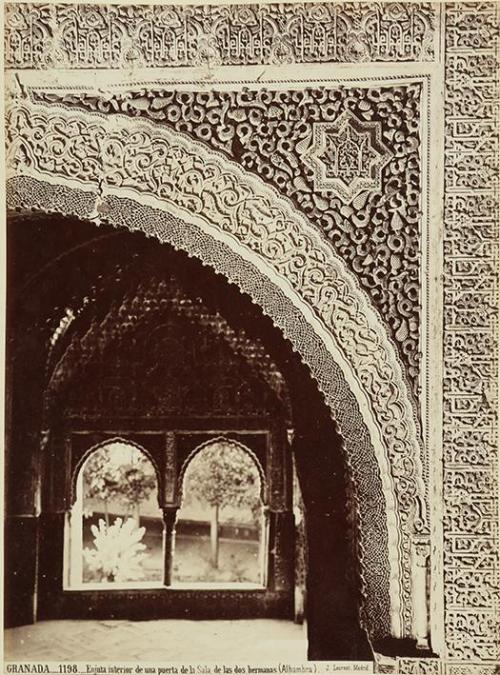 GRANADA_1198_Enjuta interior de una puerta de la Sala de las dos hermanas (Alhambra). J. Laurent. Madrid.